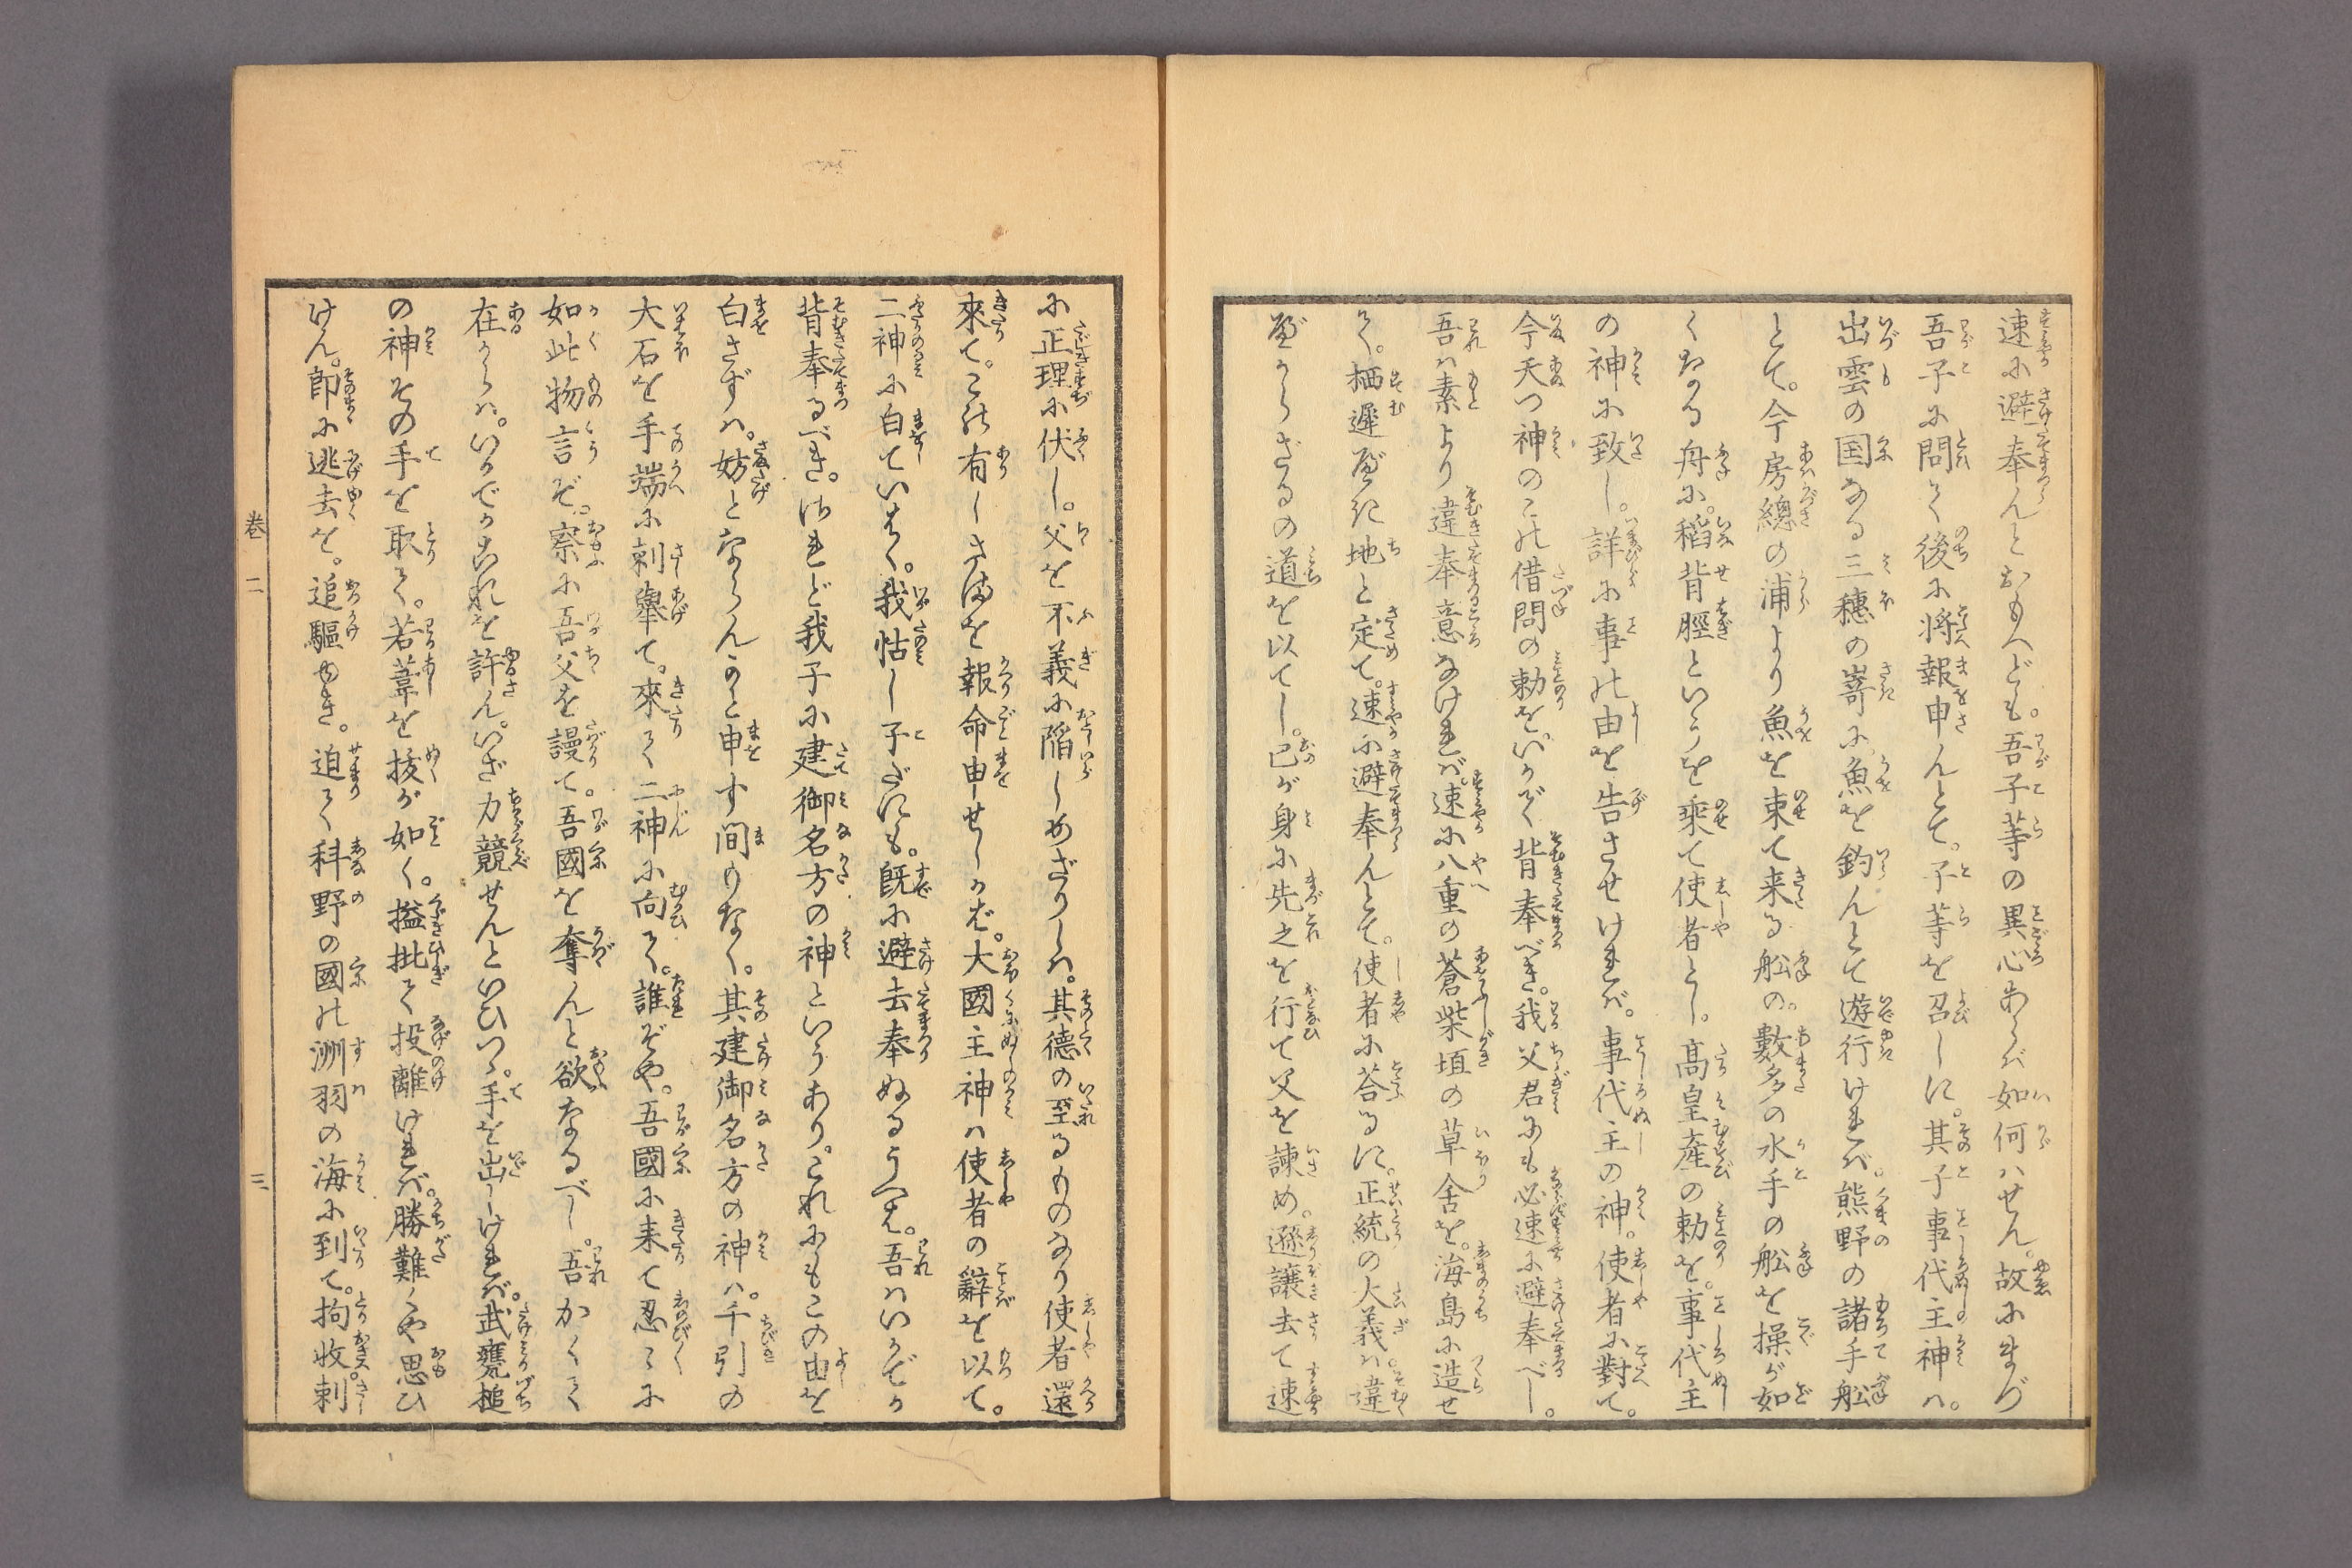 速に避奉んとおもへども。吾子等の異心あらば如何はせん。故にまづ
吾子に問て後に将報申んとて。子等を召しに。其子事代主神は。
出雲の国なる三穂の嵜に。魚を釣んとて遊行ければ。熊野の諸手舩
とて。今房總の浦より魚を束て来る舩の。數多の水手の舩を操が如
くなる舟に。稻背脛といふを乘て使者とし。髙皇産の勅を。事代主
の神に致し。詳に事の由を告させければ。事代主の神。使者に對て。
今天つ神のこの借問の勅を。いかで背奉べき。我父君にも必速に避奉べし。
吾は素より違奉意なければ。速に八重の蒼柴垣の草舎を。海島に造せ
て。栖遲べき地と定て。速に避奉んとて。使者に荅るに。正統の大義は。違
べからざるの道を以てし。己が身に先之を行て父を諫め。遜讓去て速
に正理に伏し。父を不義に陥しめざりしは。其德の至るものなり使者還
來て。この有しさまを報命申せしかば。大國主神は使者の辭を以て。
二神に白ていはく。我怙し子だにも。既に避去奉ぬるうへは。吾はいかでか
背奉るべき。されど我子に建御名方の神といふあり。これにもこの由を
白さずは。妨とならんかと申す間もなく。其建御名方の神は。千引の
大石を手端に刺擧て。來て二神に向て。誰ぞや。吾國に来て忍こに
如此物言ぞ。察に吾父を謾て。吾國を奪んと欲なるべし。吾かくて
在からは。いかでかこれを許ん。いざ力競せんといひつゝ。手を出しければ。武甕槌
の神その手を取て。若葦を拔が如く。搤批て投離ければ。勝難くや思ひ
けん。即に逃去を。追驅ゆき。迫て科野の國の洲羽の海に到て。拘收。刺
卷二
三